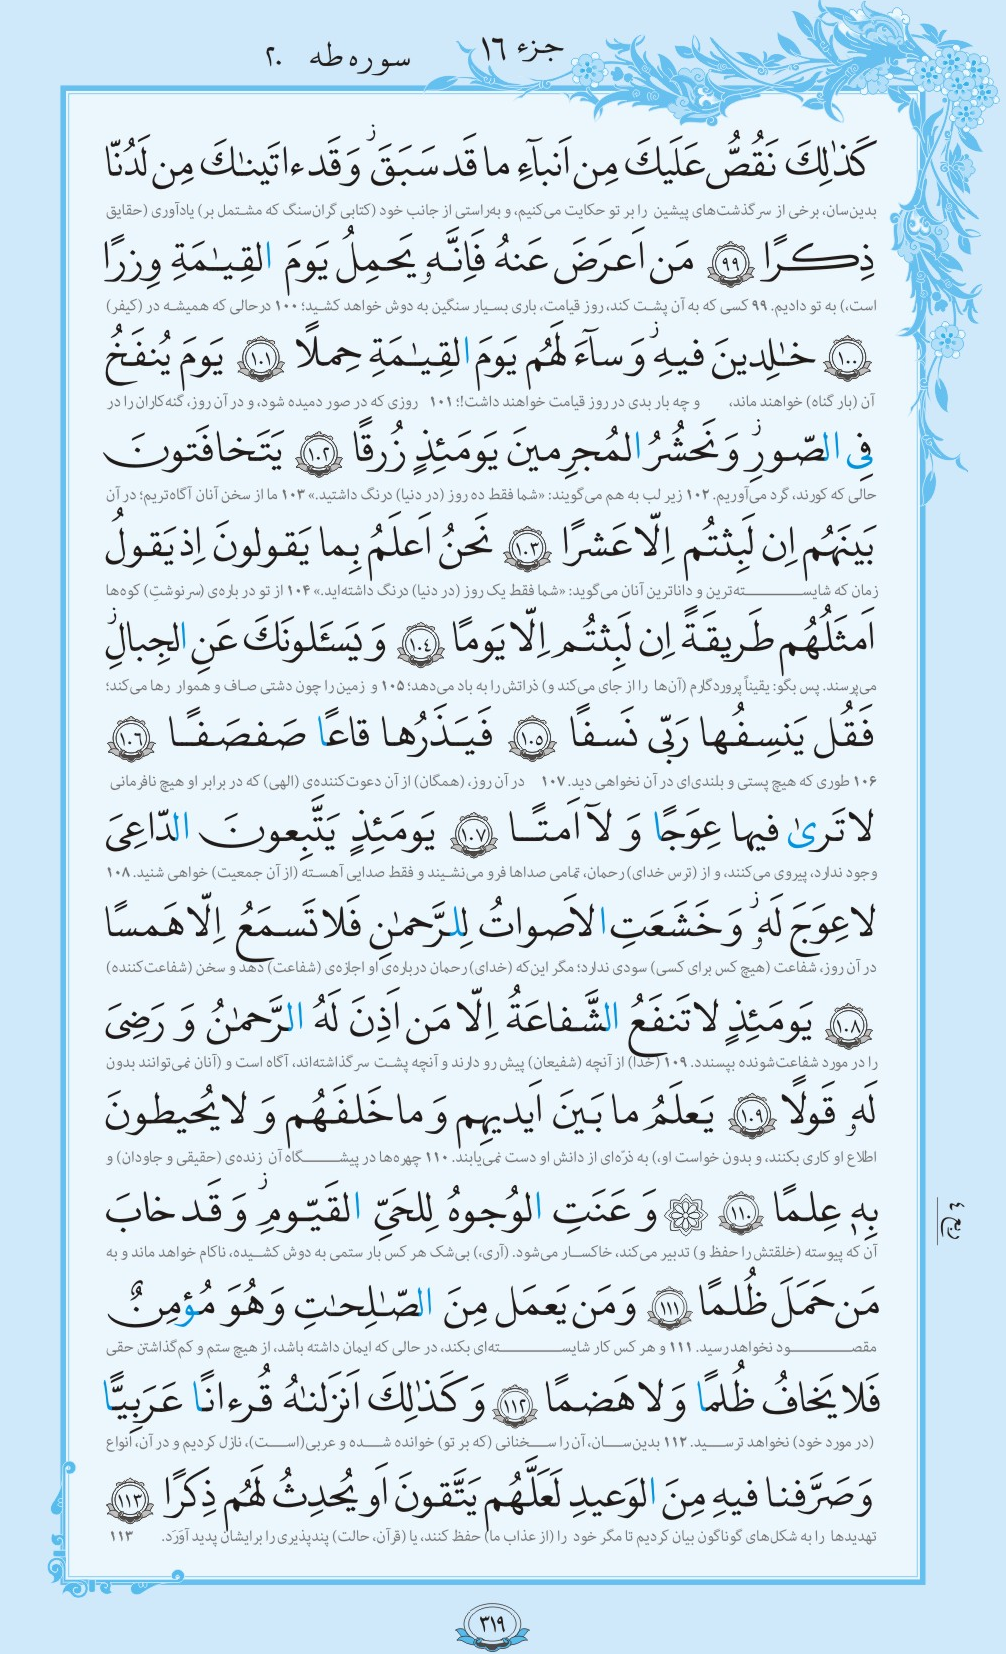 جزء ١٦
سوره طه ٢٠
كَذٰلِكَ نَقُصُّ عَلَيكَ مِن اَنبآءِ ما قَد سَبَقَ ۚ وَ قَد ءاتَينٰكَ مِن لَدُنّا
بدین‌سان، برخی از سرگذشت‌های پیشین را بر تو حکایت می‌کنیم، و به‌راستی از جانب خود (کتابی گران‌سنگ که مشتمل بر) یادآوری (حقایق
ذِكرًا ﴿٩٩﴾ مَن اَعرَضَ عَنهُ فَاِنَّهُۥ يَحمِلُ يَومَ القِيٰمَةِ وِزرًا
است،) به تو دادیم. ۹۹ کسی که به آن پشت کند، روز قیامت، باری بسیار سنگین به دوش خواهد کشید؛ ۱۰۰ درحالی که همیشه در (کیفر)
﴿١٠٠﴾ خٰلِدينَ فيهِ ۖ وَ سآءَ لَهُم يَومَ القِيٰمَةِ حِملًا ﴿١٠١﴾ يَومَ يُنفَخُ
آن (بار گناه) خواهند ماند، و چه بار بدی در روز قیامت خواهند داشت!؛ ۱۰۱ روزی که در صور دمیده شود، و در آن روز، گنه‌کاران را در
فِى الصّورِ ۚ وَ نَحشُرُ المُجرِمينَ يَومَئِذٍ زُرقًا ﴿١٠٢﴾ يَتَخافَتونَ
حالی که کورند، گرد می‌آوریم. ۱۰۲ زیر لب به هم می‌گویند: «شما فقط ده روز (در دنیا) درنگ داشتید.» ۱۰۳ ما از سخن آنان آگاه‌تریم؛ در آن
بَينَهُم اِن لَبِثتُم اِلّا عَشرًا ﴿١٠٣﴾ نَحنُ اَعلَمُ بِما يَقولونَ اِذ يَقولُ
زمان که شایسته‌ترین و داناترین آنان می‌گوید: «شما فقط یک روز (در دنیا) درنگ داشته‌اید.» ۱۰۴ از تو در باره‌ی (سرنوشتِ) کوه‌ها
اَمثَلُهُم طَريقَةً اِن لَبِثتُم اِلّا يَومًا ﴿١٠٤﴾ وَ يَسـَٔلونَكَ عَنِ الجِبالِ
می‌پرسند. پس بگو: یقیناً پروردگارم (آن‌ها را از جای می‌کند و) ذراتش را به باد می‌دهد؛ ۱۰۵ و زمین را چون دشتی صاف و هموار رها می‌کند؛
فَقُل يَنسِفُها رَبّى نَسفًا ﴿١٠٥﴾ فَيَذَرُها قاعًا صَفصَفًا ﴿١٠٦﴾
۱۰۶ طوری که هیچ پستی و بلندی‌ای در آن نخواهی دید. ۱۰۷ در آن روز، (همگان) از آن دعوت‌کننده‌ی (الهی) که در برابر او هیچ نافرمانی
لا تَرىٰ فيها عِوَجًا وَ لآ اَمتًا ﴿١٠٧﴾ يَومَئِذٍ يَتَّبِعونَ الدّاعِىَ
وجود ندارد، پیروی می‌کنند، و از (ترس خدای) رحمان، تمامی صداها فرو می‌نشیند و فقط صدایی آهسته (از آن جمعیت) خواهی شنید. ۱۰۸
لا عِوَجَ لَهُۥ ۖ وَ خَشَعَتِ الاَصواتُ لِلرَّحمٰنِ فَلا تَسمَعُ اِلّا هَمسًا
در آن روز، شفاعت (هیچ کس برای کسی) سودی ندارد؛ مگر این‌که (خدای) رحمان درباره‌ی او اجازه‌ی (شفاعت) دهد و سخن (شفاعت‌کننده)
﴿١٠٨﴾ يَومَئِذٍ لا تَنفَعُ الشَّفاعَةُ اِلّا مَن اَذِنَ لَهُ الرَّحمٰنُ وَ رَضِىَ
را در مورد شفاعت‌شونده بپسندد. ۱۰۹ (خدا) از آنچه (شفیعان) پیش رو دارند و آنچه پشت سر گذاشته‌اند، آگاه است و (آنان نمی‌توانند بدون
لَهُۥ قَولًا ﴿١٠٩﴾ يَعلَمُ ما بَينَ اَيديهِم وَ ما خَلفَهُم وَ لا يُحيطونَ
اطلاع او کاری بکنند، و بدون خواست او،) به ذرّه‌ای از دانش او دست نمی‌یابند. ۱۱۰ چهره‌ها در پیشگاه آن زنده‌ی (حقیقی و جاودان) و
بِهٖ عِلمًا ﴿١١٠﴾ ۞ وَ عَنَتِ الوُجوهُ لِلحَىِّ القَيّومِ ۖ وَ قَد خابَ
آن که پیوسته (خلقتش را حفظ و) تدبیر می‌کند، خاکسار می‌شود. (آری،) بی‌شک هر کس بار ستمی به دوش کشیده، ناکام خواهد ماند و به
مَن حَمَلَ ظُلمًا ﴿١١١﴾ وَ مَن يَعمَل مِنَ الصّٰلِحٰتِ وَ هُوَ مُؤمِنٌ
مقصود نخواهد رسید. ۱۱۱ و هر کس کار شایسته‌ای بکند، در حالی که ایمان داشته باشد، از هیچ ستم و کم‌گذاشتن حقی
فَلا يَخافُ ظُلمًا وَ لا هَضمًا ﴿١١٢﴾ وَ كَذٰلِكَ اَنزَلنٰهُ قُرءانًا عَرَبِيًّا
(در مورد خود) نخواهد ترسید. ۱۱۲ بدین‌سان، آن را سخنانی (که بر تو) خوانده شده و عربی(است)، نازل کردیم و در آن، انواع
وَ صَرَّفنا فيهِ مِنَ الوَعيدِ لَعَلَّهُم يَتَّقونَ اَو يُحدِثُ لَهُم ذِكرًا ﴿١١٣﴾
تهدیدها را به شکل‌های گوناگون بیان کردیم تا مگر خود را (از عذاب ما) حفظ کنند، یا (قرآن، حالت) پندپذیری را برایشان پدید آورَد. ۱۱۳
ربع ٤
٣١٩